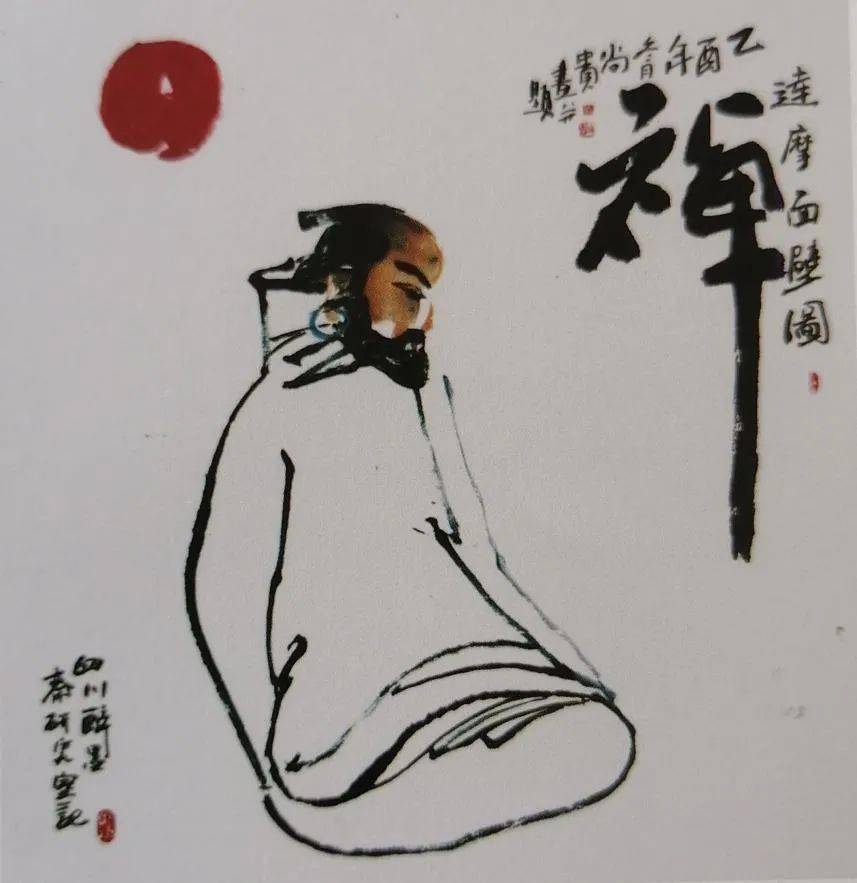 達摩面壁圖
禪
乙酉年尚貴
畫并
題
四川醉墨
齋研究室記